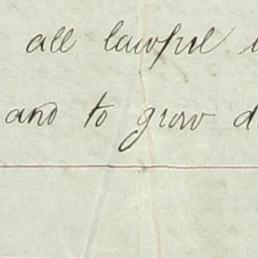 all lawful
and to grow